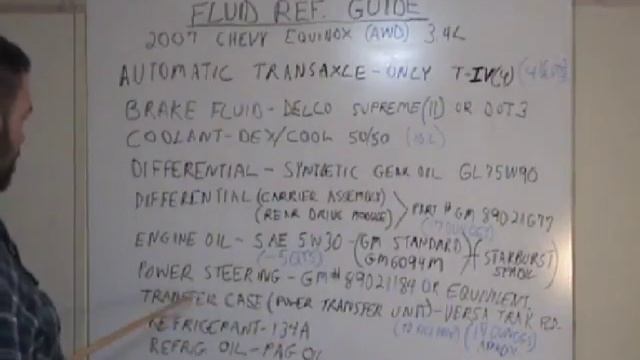 FLUID REF. GUIDE
2007 CHEVY EQUINOX (AWD) 3.4L
AUTOMATIC TRANSAXLE-ONLY T-IV(4)
BRAKE FLUID-DELCO SUPREME(11) OR DOT3
COOLANT-DEX/COOL 50/50
DIFFERENTIAL - SYNTHETIC GEAR OIL GL75W90
DIFFERENTIAL (CARRIER ASSEMBLY)
(REAR DRIVE MODULE) PART # GM 89021677
ENGINE OIL - SAE 5W30 - (GM STANDARD
GM6094M) (STARBURST
(~5QTS)
POWER STEERING - GM# 89021184 OR EQUIVILENT
TRANSFER CASE (POWER TRANSFER UNIT)-VERSA TRAK FLD.
REFRIGERANT-134A
REFRIG OIL-PAG OIL